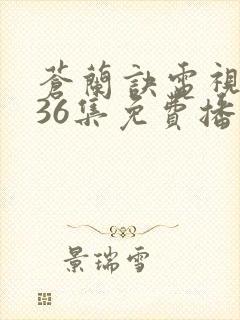 蒼蘭訣電視
36集免費播
景瑞雪